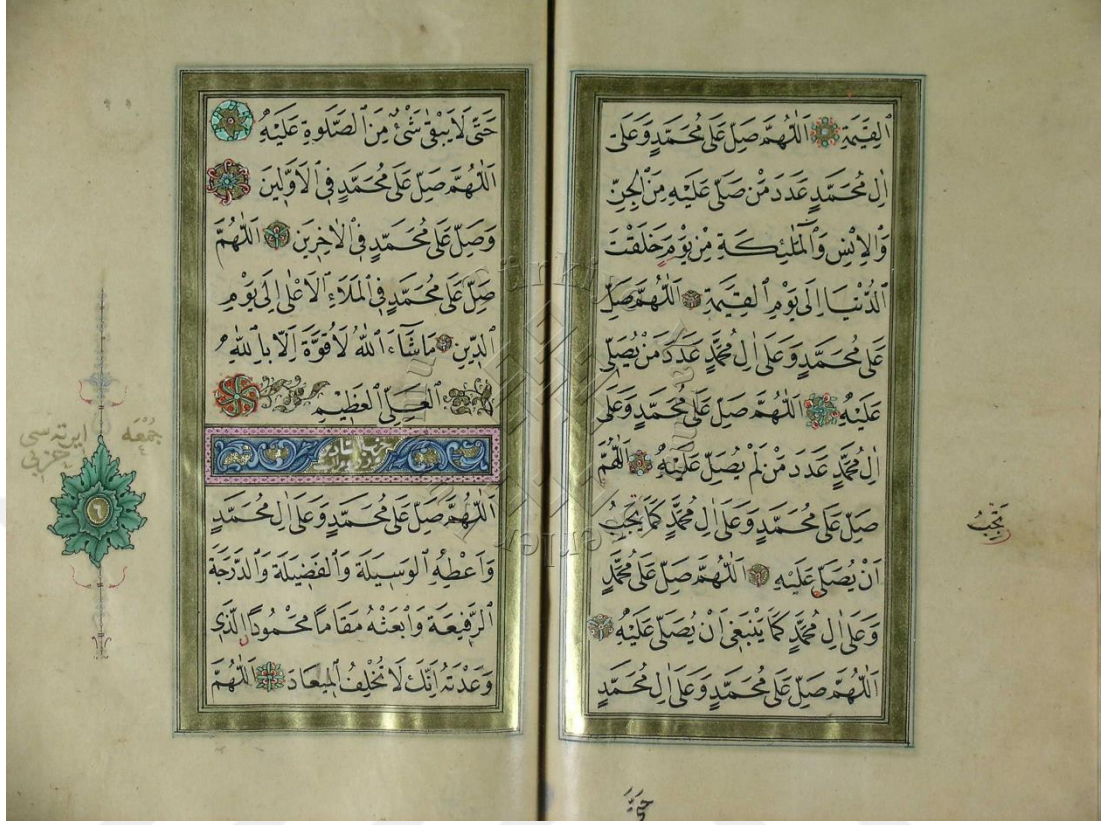 ٱلْقِيٰمَةِ اَللّٰهُمَّ صَلِّ عَلٰى مُحَمَّدٍ وَعَلٰى
اٰلِ مُحَمَّدٍ عَدَدَ مَنْ صَلّٰى عَلَيْهِ مِنَ ٱلْجِنِّ
وَٱلْاِنْسِ وَٱلْمَلٰٓئِكَةِ مِنْ يَوْمِ خَلَقْتَ
ٱلدُّنْيَا اِلٰى يَوْمِ ٱلْقِيٰمَةِ اَللّٰهُمَّ صَلِّ
عَلٰى مُحَمَّدٍ وَعَلٰى اٰلِ مُحَمَّدٍ عَدَدَ مَنْ يُصَلّٖى
عَلَيْهِ اَللّٰهُمَّ صَلِّ عَلٰى مُحَمَّدٍ وَعَلٰى
اٰلِ مُحَمَّدٍ عَدَدَ مَنْ لَمْ يُصَلِّ عَلَيْهِ اَللّٰهُمَّ
صَلِّ عَلٰى مُحَمَّدٍ وَعَلٰى اٰلِ مُحَمَّدٍ كَمَا يَجِبُ
اَنْ يُصَلّٰى عَلَيْهِ اَللّٰهُمَّ صَلِّ عَلٰى مُحَمَّدٍ
وَعَلٰى اٰلِ مُحَمَّدٍ كَمَا يَنْبَغٖى اَنْ يُصَلّٰى عَلَيْهِ
اَللّٰهُمَّ صَلِّ عَلٰى مُحَمَّدٍ وَعَلٰى اٰلِ مُحَمَّدٍ
حَتّٰى
حَتّٰى لَا يَبْقٰى شَىْءٌ مِنَ ٱلصَّلٰوةِ عَلَيْهِ
اَللّٰهُمَّ صَلِّ عَلٰى مُحَمَّدٍ فِى ٱلْاَوَّلٖينَ
وَصَلِّ عَلٰى مُحَمَّدٍ فِى ٱلْاٰخِرٖينَ اَللّٰهُمَّ
صَلِّ عَلٰى مُحَمَّدٍ فِى ٱلْمَلَاءِ ٱلْاَعْلٰى اِلٰى يَوْمِ
ٱلدّٖينِ مَا شَٓاءَ ٱللّٰهُ لَا قُوَّةَ اِلَّا بِٱللّٰهِ
ٱلْعَلِىِّ ٱلْعَظٖيمِ
اَللّٰهُمَّ صَلِّ عَلٰى مُحَمَّدٍ وَعَلٰى اٰلِ مُحَمَّدٍ
وَاَعْطِهِ ٱلْوَسٖيلَةَ وَٱلْفَضٖيلَةَ وَٱلدَّرَجَةَ
ٱلرَّفٖيعَةَ وَٱبْعَثْهُ مَقَامًا مَحْمُودًا ٱلَّذٖى
وَعَدْتَهُ اِنَّكَ لَا تُخْلِفُ ٱلْمٖيعَادَ اَللّٰهُمَّ
جمعه ايرته سى
حزبى
٦